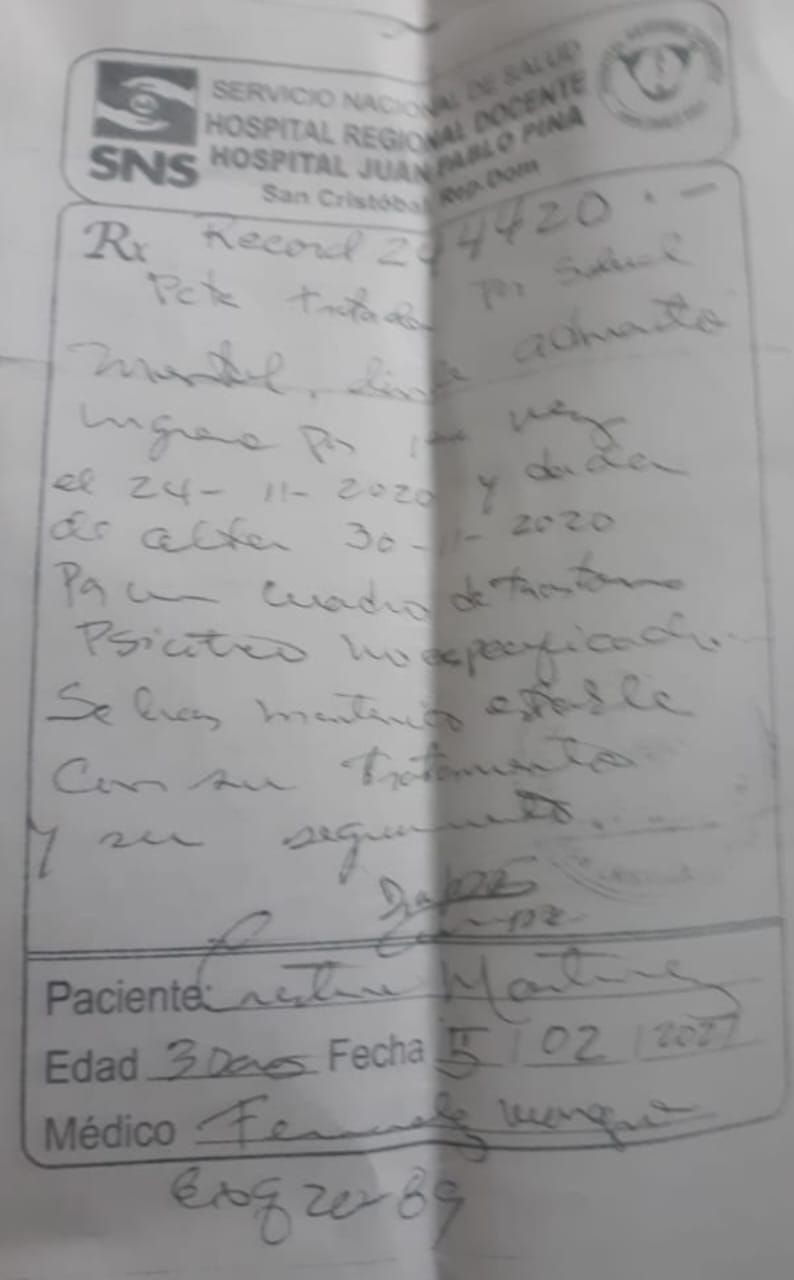 SNS
SERVICIO NACIONAL DE SALUD
HOSPITAL REGIONAL DOCENTE
HOSPITAL JUAN PABLO PINA
San Cristóbal Rep. Dom
Rx Record 244420.-
Pcte tratada por Salud
Mental, desde
ingreso por 1era vez
el 24-11-2020 y dada
de alta 30-11-2020
Por un cuadro de trastorno
no especificado
Se ha mantenido estable
Con su tratamiento
y su seguimiento.
Paciente: Martinez
Edad 30 años Fecha 5 / 02 / 2021
Médico